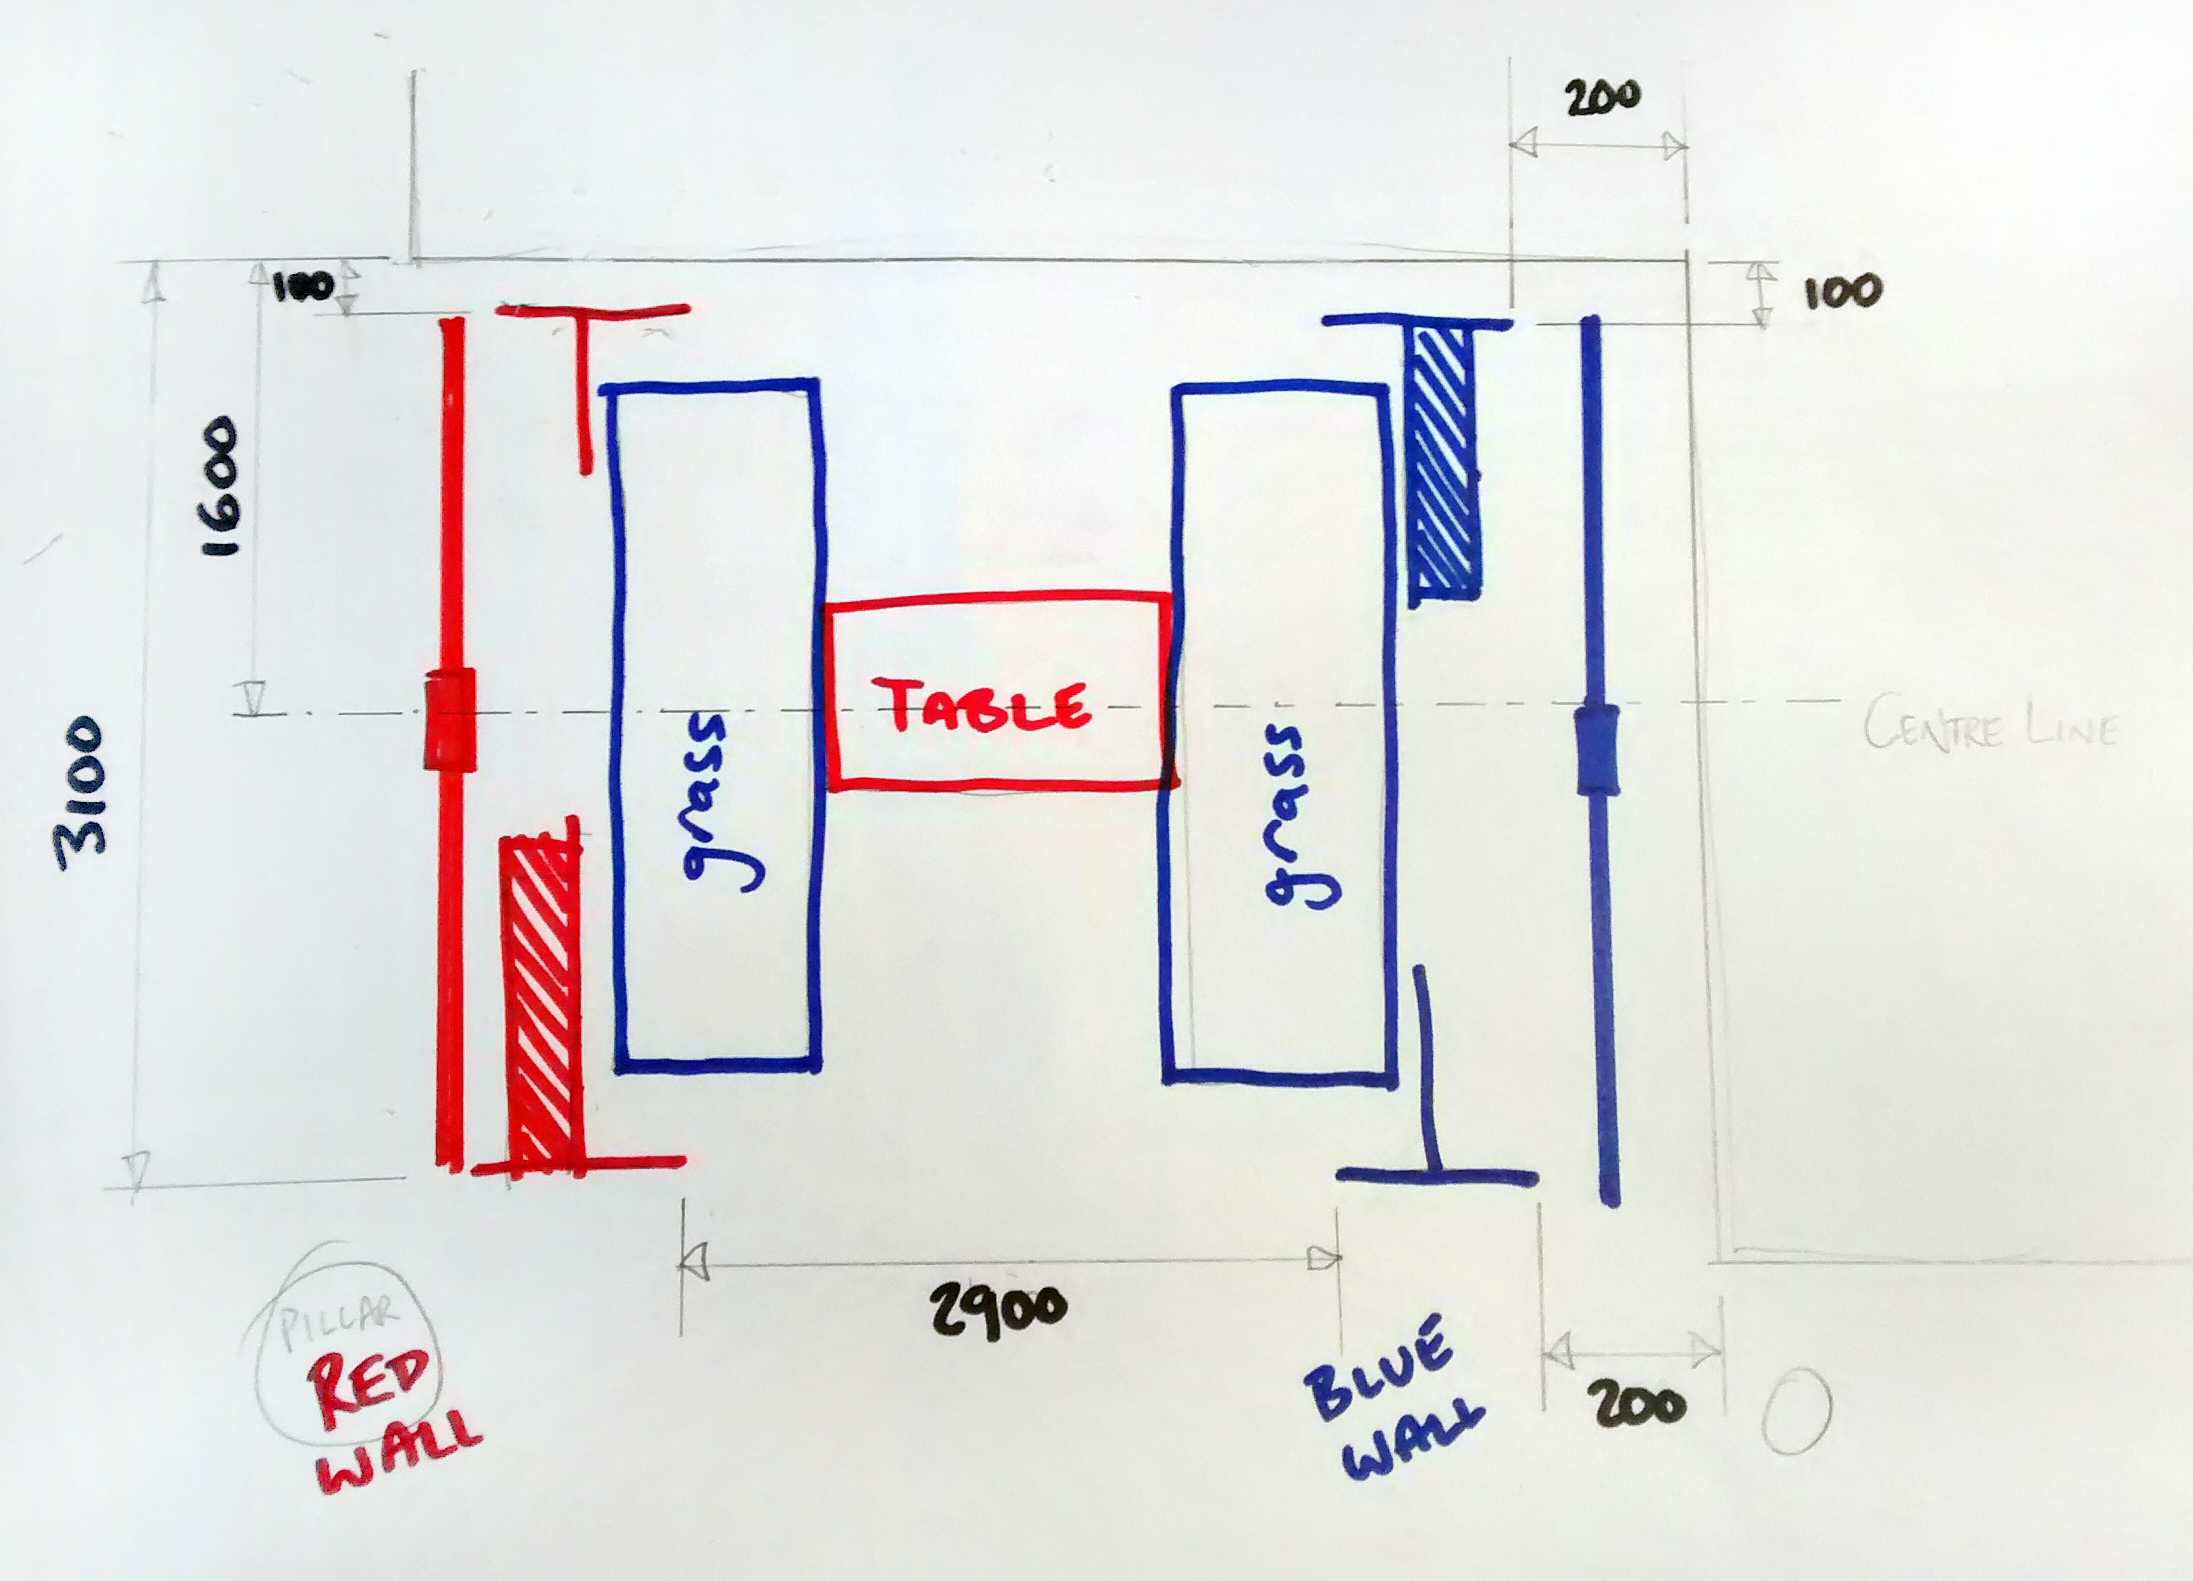 200
100
100
1600
TABLE
grass
grass
CENTRE LINE
3100
2900
PILLAR
RED
WALL
BLUE
WALL
200